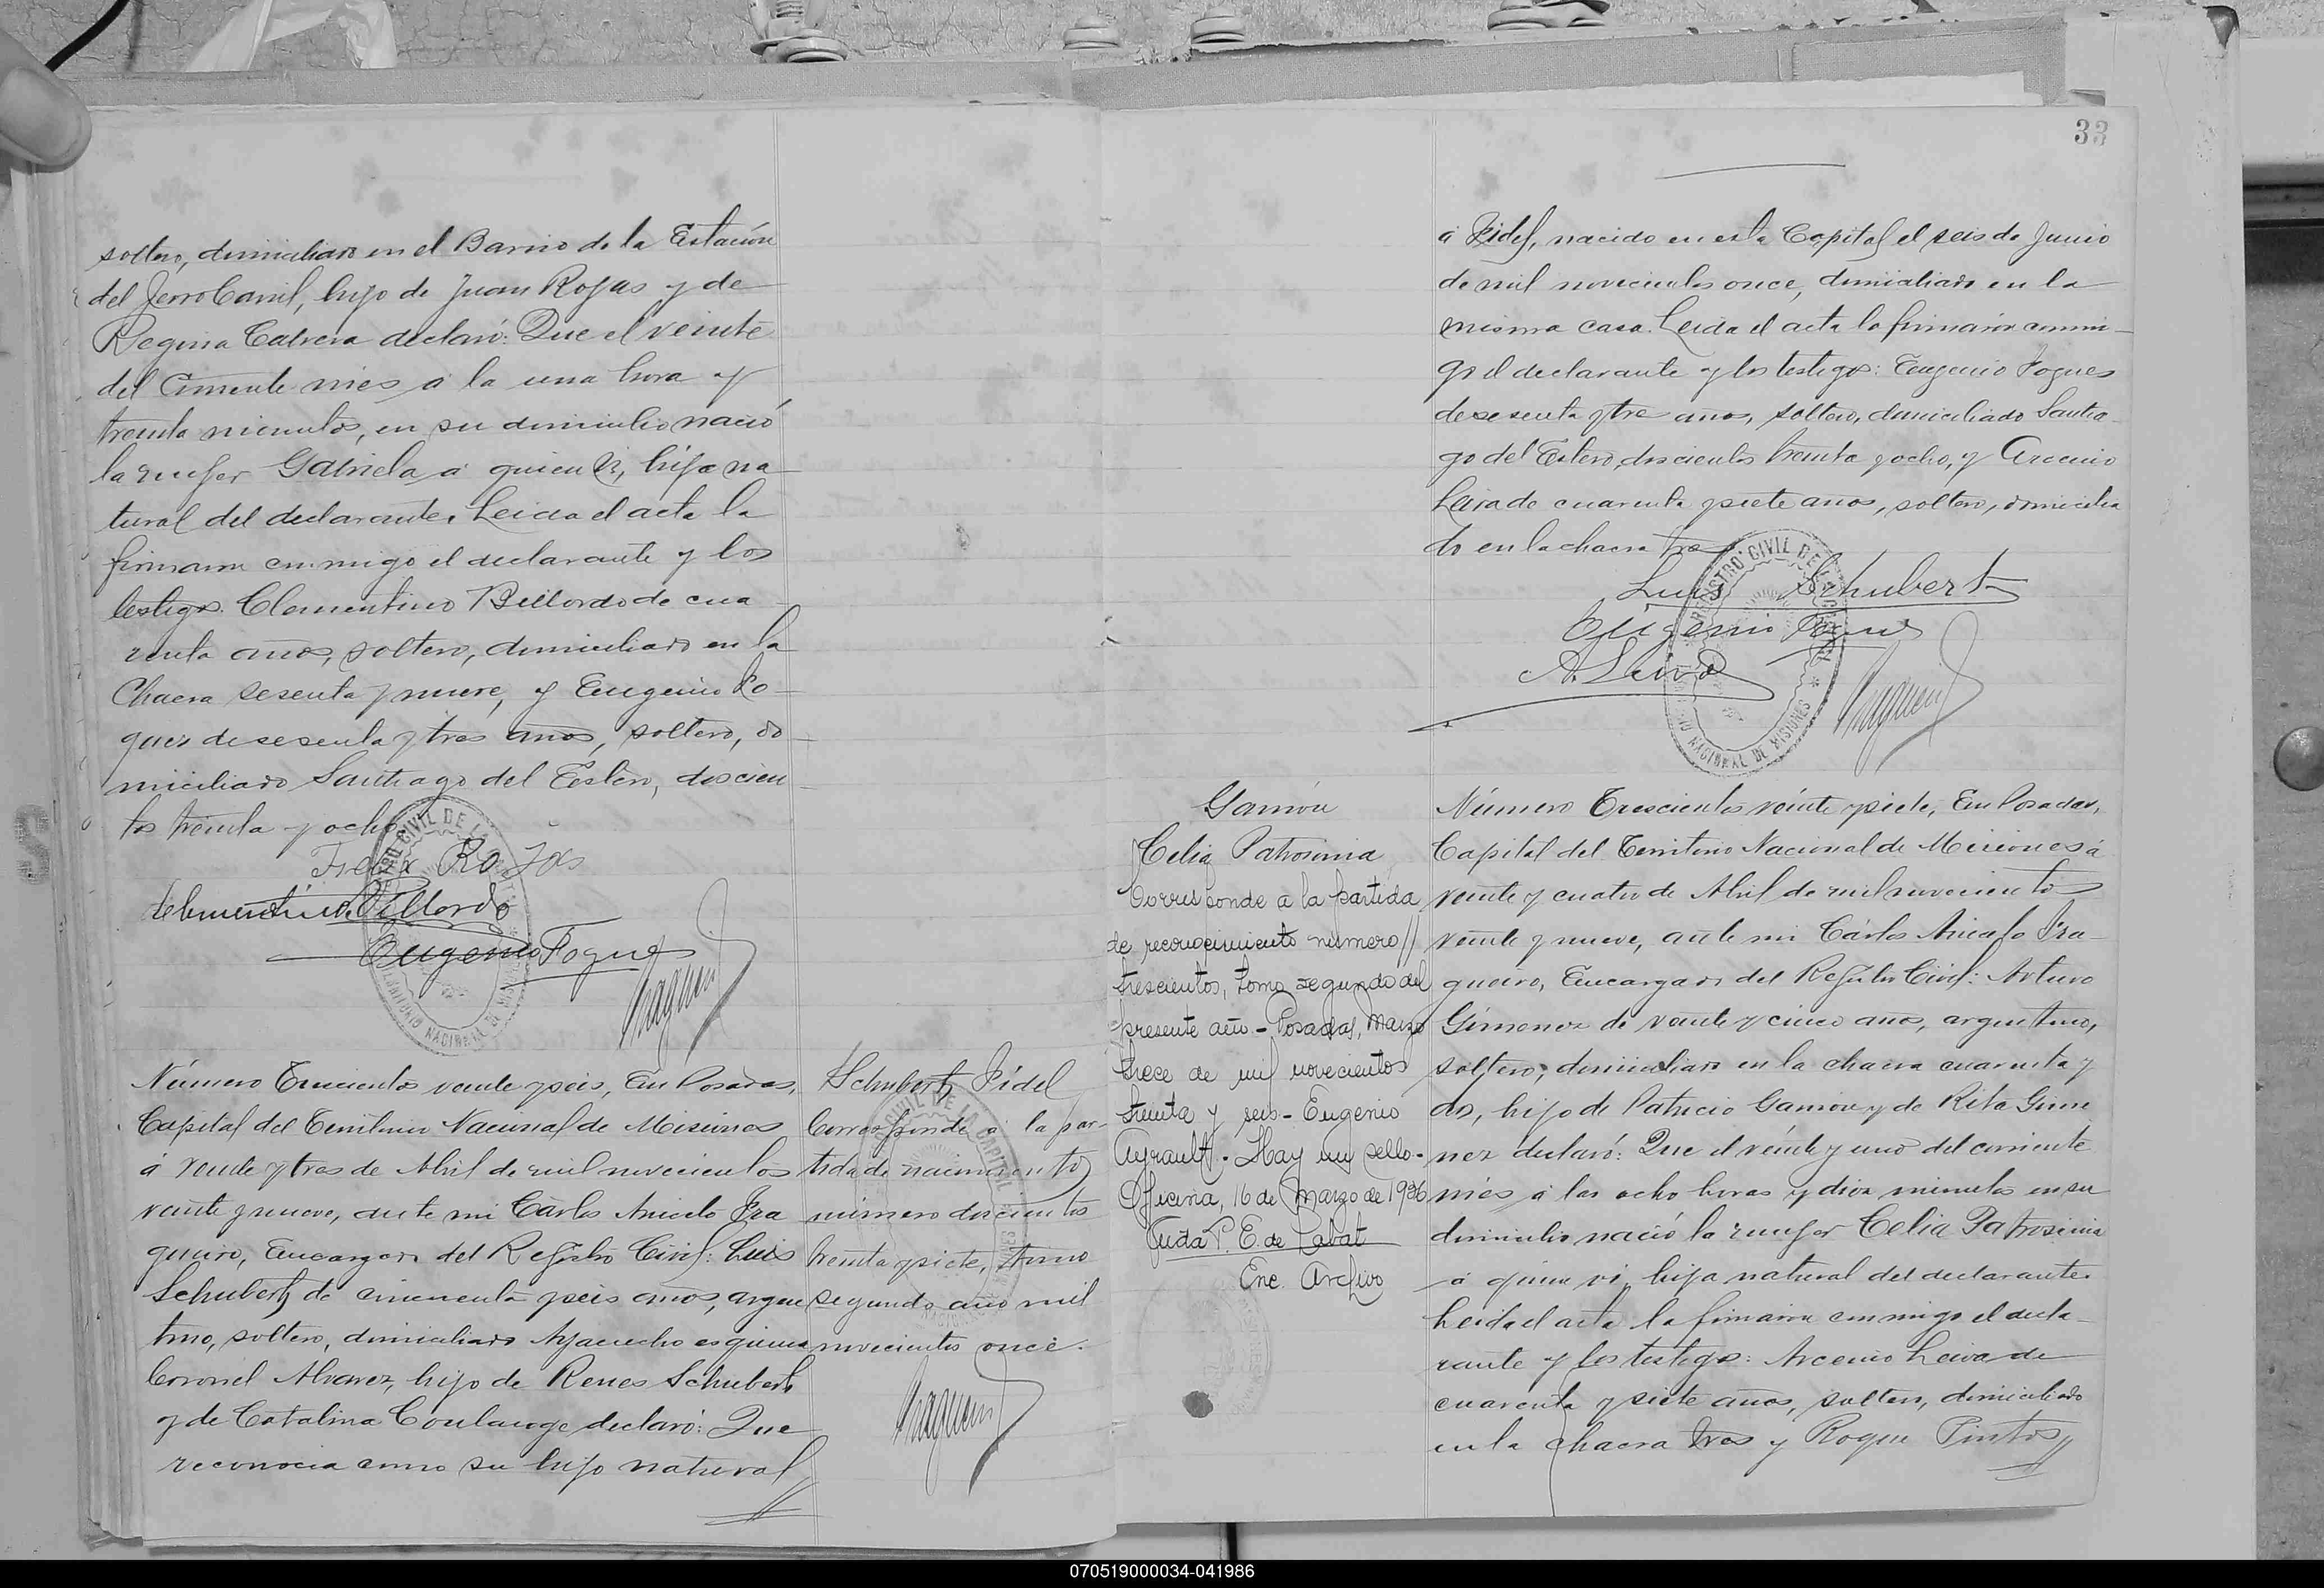 soltero, domiciliado en el Barrio de la Estación
del Ferro Carril, hijo de Juan Rojas y de
Regina Cabrera declaró: Que el veinte
del corriente mes a la una hora y
treinta minutos, en su domicilio nació
la mujer Gabriela a quien vi, hija na
tural del declarante. Leida el acta la
firmaron conmigo el declarante y los
testigos. Clementino Billordo de cua
renta años, soltero, domiciliado en la
Chacra sesenta y nueve, y Eugenio Fo-
gues de sesenta y tres años, soltero, do-
miciliado Santiago del Estero, doscien-
tos treinta y ocho
Felix Rojas
Clementino Billordo
Eugenio Fogues
Número Trescientos veinte y seis, En Posadas,
Capital del Territorio Nacional de Misiones
á veinte y tres de Abril de mil novecientos
veinte y nueve, ante mi Cárlos Aniceto Fra
gueiro, Encargado del Registro Civil: Luis
Schubert de cincuenta y seis años, argen
tino, soltero, domiciliado Ayacucho esquina
Coronel Alvarez, hijo de Renes Schubert
y de Catalina declaró: Que
reconocia como su hijo natural
Schubert, Fidel
Corresponde a la par-
tida de nacimiento
número doscientos
treinta y siete, tomo
segundo año mil
novecientos once.
33
á Fidel, nacido en esta Capital el seis de Junio
de mil novecientos once, domiciliado en la
misma casa. Leida el acta la firmaron conmi-
go el declarante y los testigos: Eugenio Fogues
de sesenta y tres años, soltero, domiciliado Santia-
go del Estero, doscientos treinta y ocho, y Arcenio
Leiva de cuarenta y siete años, soltero, domicilia
do en la chacra tres
Luis Schubert
Eugenio Fogues
A. Leiva
REGISTRO CIVIL DE LA CAPITAL
TERRITORIO NACIONAL DE MISIONES
Gamón
Celia Patrosinia
Corresponde a la partida
de reconocimiento número //
trescientos, tomo segundo del
presente año - Posadas, Marzo
trece de mil novecientos
treinta y seis - Eugenio
Ayrault - Hay un sello -
Oficina, 16 de Marzo de 1936
P. E. de Labat
Enc. Archivo
Número Trescientos veinte y siete, En Posadas,
Capital del Territorio Nacional de Misiones á
veinte y cuatro de Abril de mil novecientos
veinte y nueve, ante mi Cárlos Aniceto Fra-
gueiro, Encargado del Registro Civil: Arturo
Gimenez de veinte y cinco años, argentino,
soltero, domiciliado en la chacra cuarenta y
dos, hijo de Patricio Gamón y de Rita Gime
nez declaró: Que el veinte y uno del corriente
mes a las ocho horas y diez minutos en su
domicilio nació la mujer Celia Patrosinia
á quien vi, hija natural del declarante.
Leida el acta la firmaron conmigo el decla-
rante y los testigos: Arcenio Leiva de
cuarenta y siete años, soltero, domiciliado
en la chacra tres y Roque Pintos
070519000034-041986